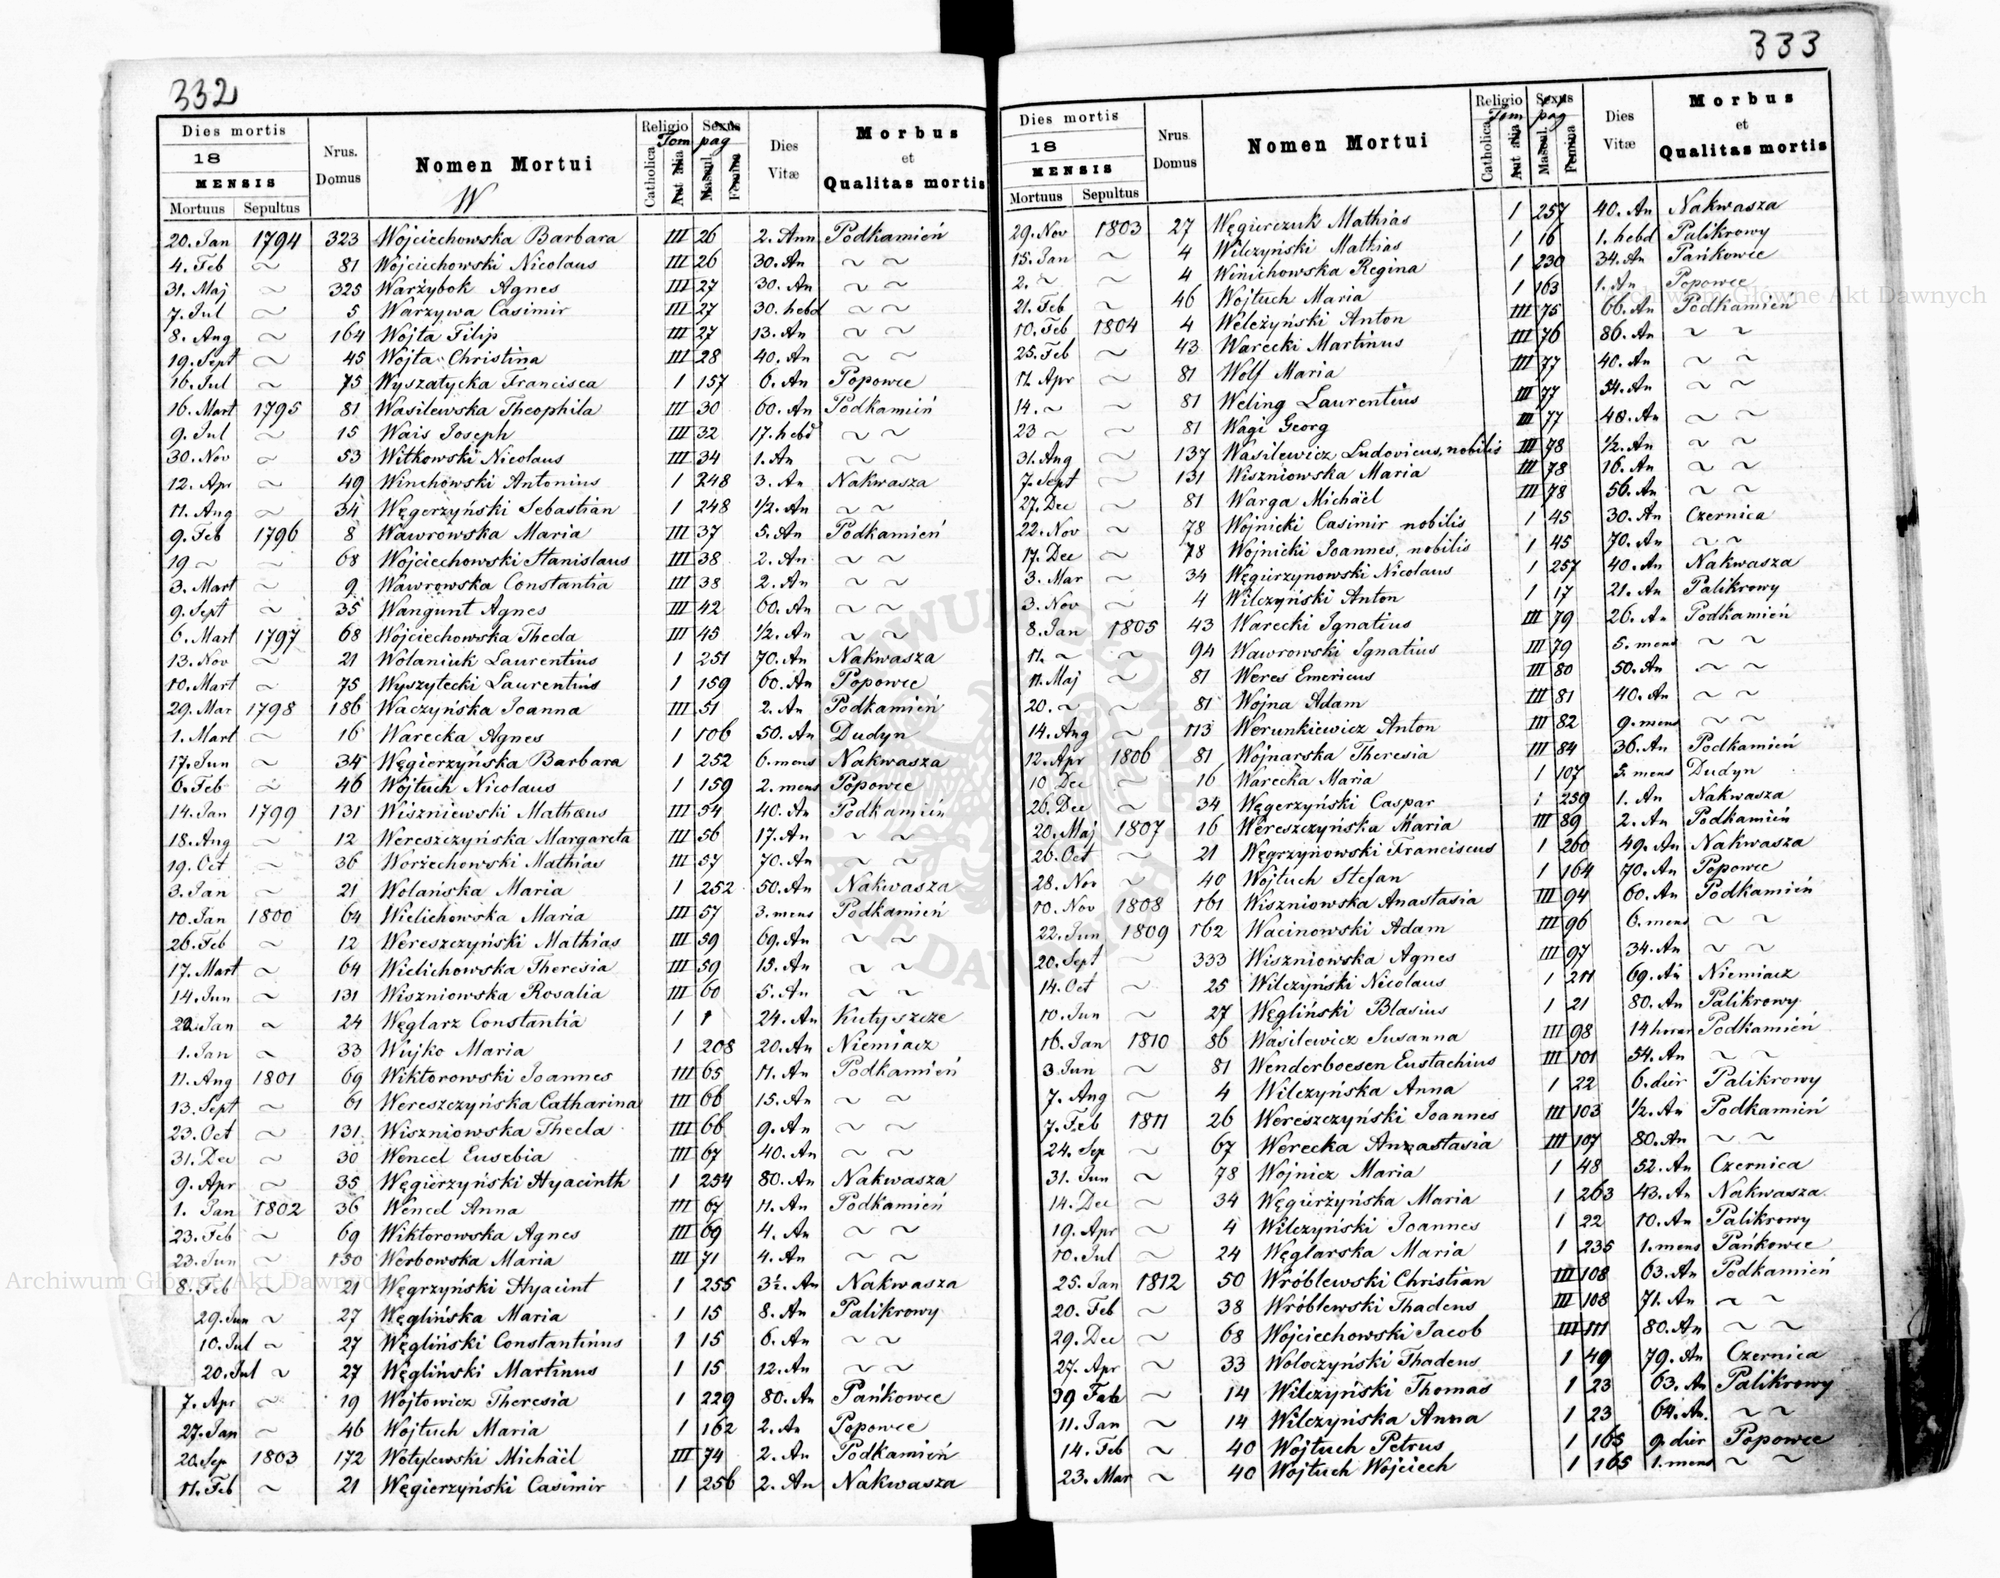 332
Dies mortis
18
MENSIS
Mortuus Sepultus
Nrus. Domus
Nomen Mortui
W
Religio Tom
Catholica
Aut alia
Sexus pag
Mascul.
Femina
Dies Vitæ
Morbus et Qualitas mortis
20. Jan 1794 323 Wojciechowska Barbara III 26 2. Ann Podkamień
4. Feb ~ 81 Wojciechowski Nicolaus III 26 30. An ~ ~
31. Maj ~ 325 Warżybok Agnes III 27 30. An ~ ~
7. Jul ~ 5 Warzywa Casimir III 27 30. hebd ~ ~
8. Aug ~ 164 Wojta Filip III 27 13. An ~ ~
19. Sept ~ 45 Wojta Christina III 28 40. An ~ ~
16. Jul ~ 75 Wyszatycka Francisca 1 157 6. An Popowce
16. Mart 1795 81 Wasilewska Theophila III 30 60. An Podkamień
9. Jul ~ 15 Wais Joseph III 32 17. hebd ~ ~
30. Nov ~ 53 Witkowski Nicolaus III 34 1. An ~ ~
12. Apr ~ 49 Winchowski Antonius 1 248 3. An Nakwasza
11. Aug ~ 34 Węgerzyński Sebastian 1 248 1/2. An ~ ~
9. Feb 1796 8 Wawrowska Maria III 37 5. An Podkamień
19 ~ ~ 68 Wojciechowski Stanislaus III 38 2. An ~ ~
3. Mart ~ 9 Wawrowska Constantia III 38 2. An ~ ~
9. Sept ~ 35 Wangunt Agnes III 42 60. An ~ ~
6. Mart 1797 68 Wojciechowska Thecla III 45 1/2. An ~ ~
13. Nov ~ 21 Wolaniuk Laurentius 1 251 70. An Nakwasza
10. Mart ~ 75 Wyszytecki Laurentius 1 159 60. An Popowce
29. Mar 1798 186 Waczyńska Joanna III 51 2. An Podkamień
1. Mart ~ 16 Warecka Agnes 1 106 50. An Dudyn
17. Jun ~ 34 Węgierzyńska Barbara 1 252 6. mens Nakwasza
6. Feb ~ 46 Wojtuch Nicolaus 1 159 2. mens Popowce
14. Jan 1799 131 Wiszniewski Mathæus III 54 40. An Podkamień
18. Aug ~ 12 Wereszczyńska Margareta III 56 17. An ~ ~
19. Oct ~ 36 Worżechowski Mathias III 57 70. An ~ ~
3. Jan ~ 21 Wolańska Maria 1 252 50. An Nakwasza
10. Jan 1800 64 Wielichowska Maria III 57 3. mens Podkamień
26. Feb ~ 12 Wereszczyński Mathias III 59 69. An ~ ~
17. Mart ~ 64 Wielichowska Theresia III 59 15. An ~ ~
14. Jun ~ 131 Wiszniowska Rosalia III 60 5. An ~ ~
22. Jan ~ 24 Węglarz Constantia 1 1 24. An Kutyszcze
1. Jan ~ 33 Wujko Maria 1 208 20. An Niemiacz
11. Aug 1801 69 Wiktorowski Joannes III 65 11. An Podkamień
13. Sept ~ 61 Wereszczyńska Catharina III 66 15. An ~ ~
23. Oct ~ 131 Wiszniowska Thecla III 66 9. An ~ ~
31. Dec ~ 30 Wencel Eusebia III 67 40. An ~ ~
9. Apr ~ 35 Węgierzyński Hyacinth 1 254 80. An Nakwasza
1. Jan 1802 36 Wencel Anna III 67 11. An Podkamień
23. Feb ~ 69 Wiktorowska Agnes III 69 4. An ~ ~
23. Jun ~ 150 Werbowska Maria III 71 4. An ~ ~
8. Feb ~ 21 Węgrzyński Hyacint 1 255 3½. An Nakwasza
29. Jun ~ 27 Węglińska Maria 1 15 8. An Palikrowy
10. Jul ~ 27 Węgliński Constantinus 1 15 6. An ~ ~
20. Jul ~ 27 Węgliński Martinus 1 15 12. An ~ ~
7. Apr ~ 19 Wojtowicz Theresia 1 229 80. An Pańkowce
27. Jan ~ 46 Wojtuch Maria 1 162 2. An Popowce
20. Sep 1803 172 Wotylewski Michäel III 74 2. An Podkamień
11. Feb ~ 21 Węgierzyński Casimir 1 256 2. An Nakwasza
333
Dies mortis
18
MENSIS
Mortuus Sepultus
Nrus. Domus
Nomen Mortui
Religio Tom
Catholica
Aut alia
Sexus pag
Mascul.
Femina
Dies Vitæ
Morbus et Qualitas mortis
29. Nov 1803 27 Węgierczuk Mathias 1 257 40. An Nakwasza
15. Jan ~ 4 Wilczyński Mathias 1 16 1. hebd Palikrowy
2. ~ ~ 4 Winichowska Regina 1 230 34. An Pańkowce
21. Feb ~ 46 Wojtuch Maria 1 163 1. An Popowce
10. Feb 1804 4 Welczyński Anton III 75 66. An Podkamień
25. Feb ~ 43 Warecki Martinus III 76 86. An ~ ~
11. Apr ~ 81 Wolf Maria III 77 40. An ~ ~
14. ~ ~ 81 Weling Laurentius III 77 54. An ~ ~
23 ~ ~ 81 Wagi Georg III 77 48. An ~ ~
31. Aug ~ 137 Wasilewicz Ludovicus, nobilis III 78 1/2. An ~ ~
7. Sept ~ 131 Wiszniowska Maria III 78 16. An ~ ~
27. Dec ~ 81 Warga Michäel III 78 56. An ~ ~
22. Nov ~ 78 Wojnicki Casimir nobilis 1 45 30. An Czernica
17. Dec ~ 78 Wojnicki Joannes, nobilis 1 45 70. An ~ ~
3. Mar ~ 34 Węgierzynowski Nicolaus 1 257 40. An Nakwasza
3. Nov ~ 4 Wilczyński Anton 1 17 21. An Palikrowy
8. Jan 1805 43 Warecki Ignatius III 79 26. An Podkamień
11. ~ ~ 94 Wawrowski Ignatius III 79 5. mens ~ ~
11. Maj ~ 81 Weres Emericus III 80 50. An ~ ~
20. ~ ~ 81 Wojna Adam III 81 40. An ~ ~
14. Aug ~ 113 Werunkiewicz Anton III 82 9. mens ~ ~
12. Apr 1806 81 Wojnarska Theresia III 84 36. An Podkamień
10 Dec ~ 16 Warecka Maria 1 107 5. mens Dudyn
26. Dec ~ 34 Węgerzyński Caspar 1 259 1. An Nakwasza
20. Maj 1807 16 Wereszczyńska Maria III 89 2. An Podkamień
26. Oct ~ 21 Węgrzynowski Franciscus 1 260 49. An Nakwasza
28. Nov ~ 40 Wojtuch Stefan 1 164 70. An Popowce
10. Nov 1808 161 Wiszniowska Anastasia III 94 60. An Podkamień
22. Jun 1809 162 Wacinowski Adam III 96 6. mens ~ ~
20. Sept ~ 333 Wiszniowska Agnes III 97 34. An ~ ~
14. Oct ~ 25 Wilczyński Nicolaus 1 211 69. An Niemiacz
10. Jun ~ 27 Węgliński Blasius 1 21 80. An Palikrowy
16. Jan 1810 86 Wasilewicz Susanna III 98 14 horar Podkamień
3. Jun ~ 81 Wenderboesen Eustachius III 101 54. An ~ ~
7. Aug ~ 4 Wilczyńska Anna 1 22 6. dier Palikrowy
7. Feb 1811 26 Wereszczyński Joannes III 103 1/2. An Podkamień
24. Sep ~ 67 Werecka Anastasia III 107 80. An ~ ~
31. Jun ~ 78 Wojnicz Maria 1 48 52. An Czernica
14. Dec ~ 34 Węgierżyńska Maria 1 263 43. An Nakwasza
19. Apr ~ 4 Wilczyński Joannes 1 22 10. An Palikrowy
10. Jul ~ 24 Węglarska Maria 1 235 1. mens Pańkowce
25. Jan 1812 50 Wróblewski Christian III 108 63. An Podkamień
20. Feb ~ 38 Wróblewski Thadeus III 108 71. An ~ ~
29. Dec ~ 68 Wojciechowski Jacob III 111 80. An ~ ~
27. Apr ~ 33 Woloczyński Thadeus 1 49 79. An Czernica
29 Feb ~ 14 Wilczyński Thomas 1 23 63. An Palikrowy
11. Jan ~ 14 Wilczyńska Anna 1 23 64. An. ~ ~
14. Feb ~ 40 Wojtuch Petrus 1 165 9. dier Popowce
23. Mar ~ 40 Wojtuch Wojciech 1 165 1. mens ~ ~
Archiwum Główne Akt Dawnych
Archiwum Główne Akt Dawnych
ARCHIWUM GŁÓWNE AKT DAWNYCH